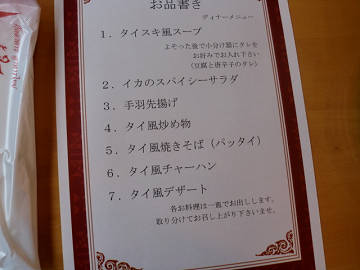 お品書き
ディナーメニュー
1．タイスキ風スープ
よそった後で小分け器にタレを
お好みでお入れ下さい
（豆腐と唐辛子のタレ）
2．イカのスパイシーサラダ
3．手羽先揚げ
4．タイ風炒め物
5．タイ風焼きそば（パッタイ）
6．タイ風チャーハン
7．タイ風デザート
各お料理は一皿でお出しします。
取り分けてお召し上がり下さいませ。